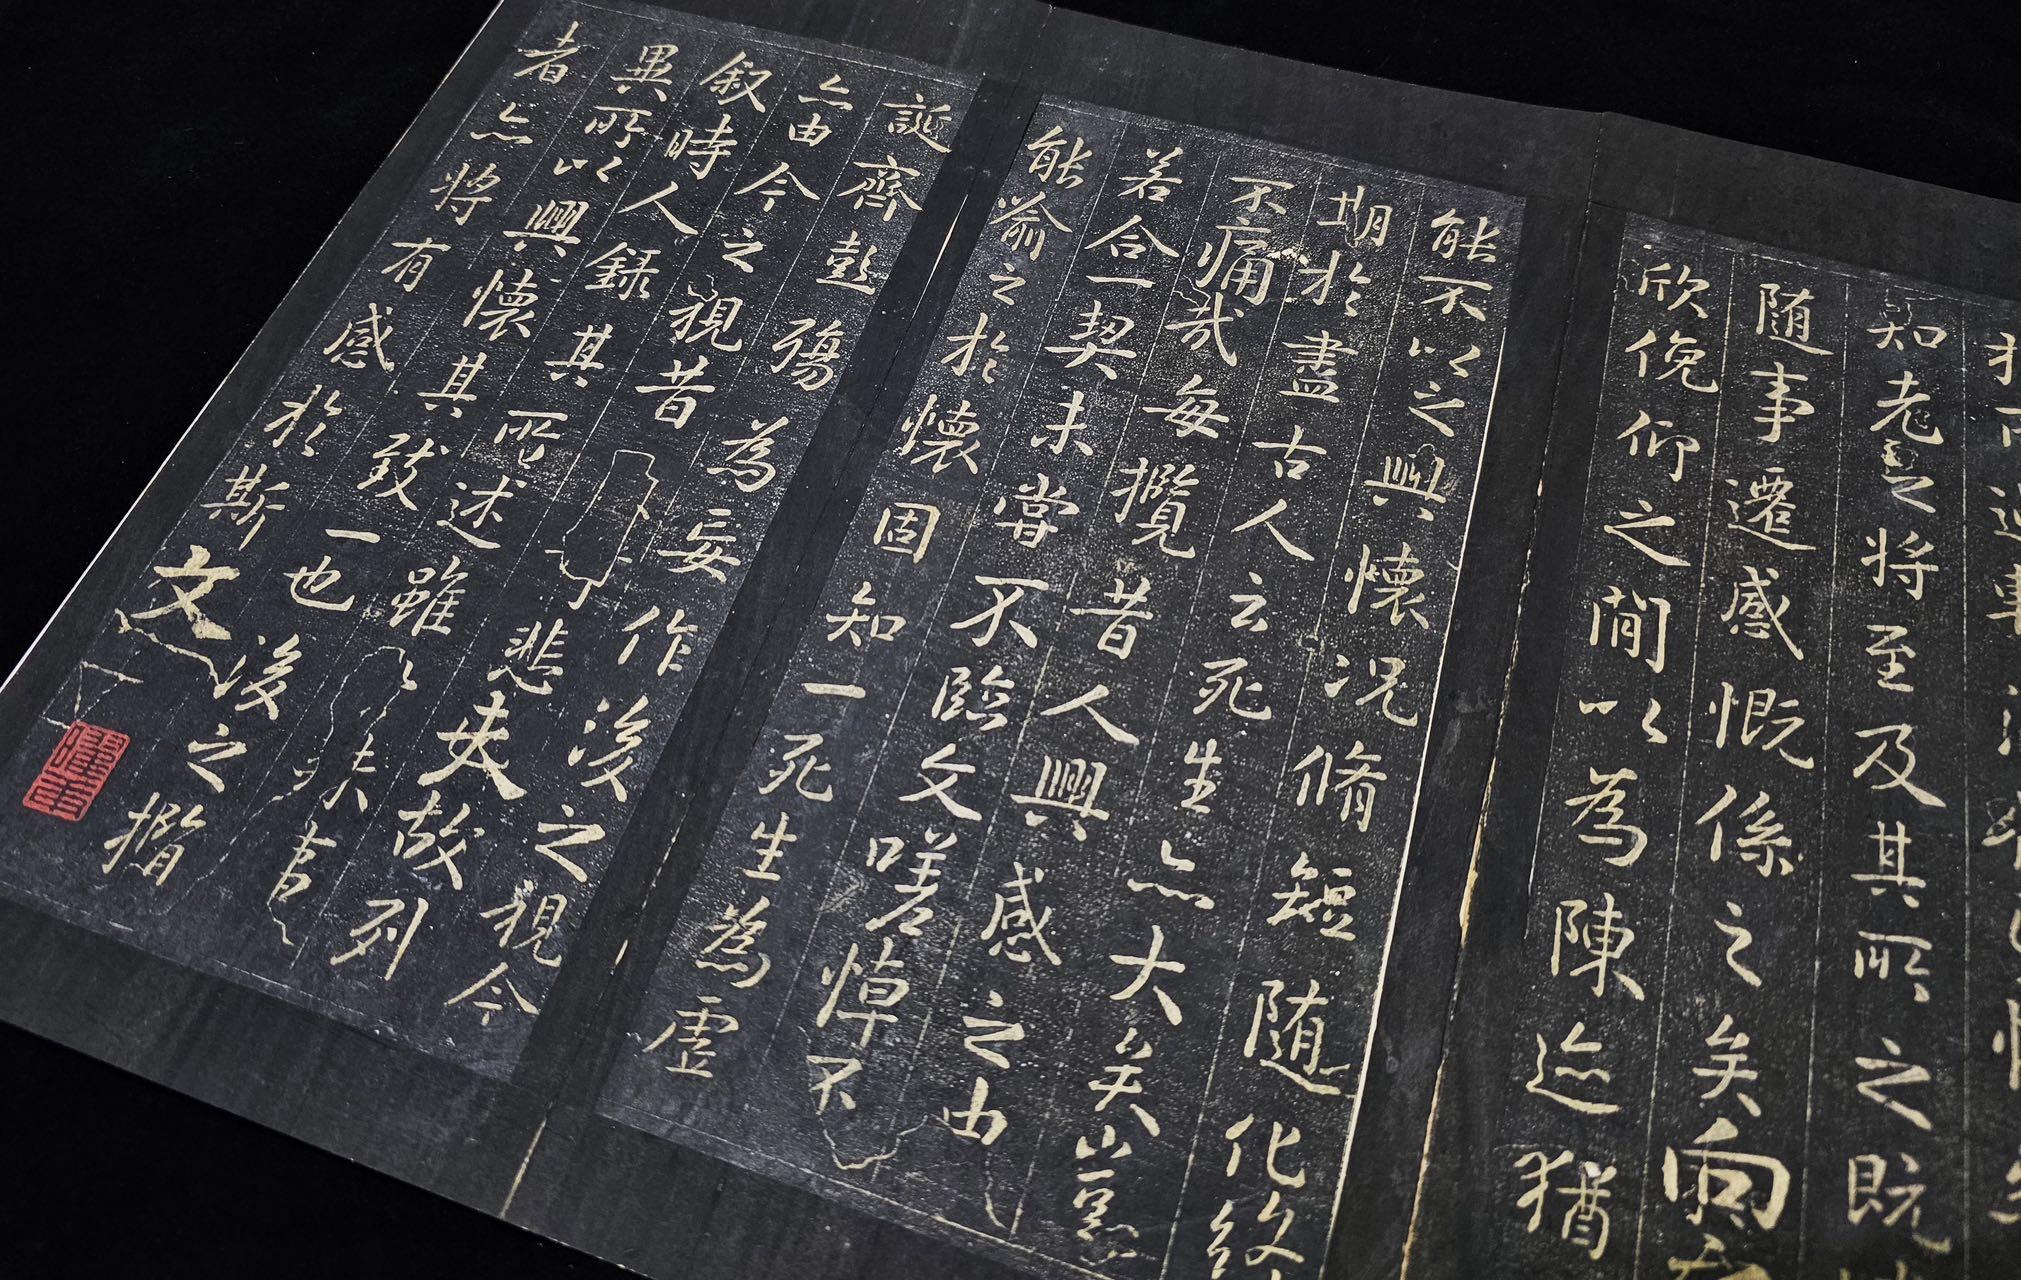 知老之將至及其所之既
随事遷感慨係之矣向
欣俛仰之閒以為陳迹猶
能不以之興懷況脩短随化終
期於盡古人云死生亦大矣豈
不痛哉每攬昔人興感之由
若合一契未嘗不臨文嗟悼不
能喻之於懷固知一死生為虛
誕齊彭殤為妄作後之視今
亦由今之視昔悲夫故列
叙時人録其所述雖世殊事
異所以興懷其致一也後之攬
者亦將有感於斯文